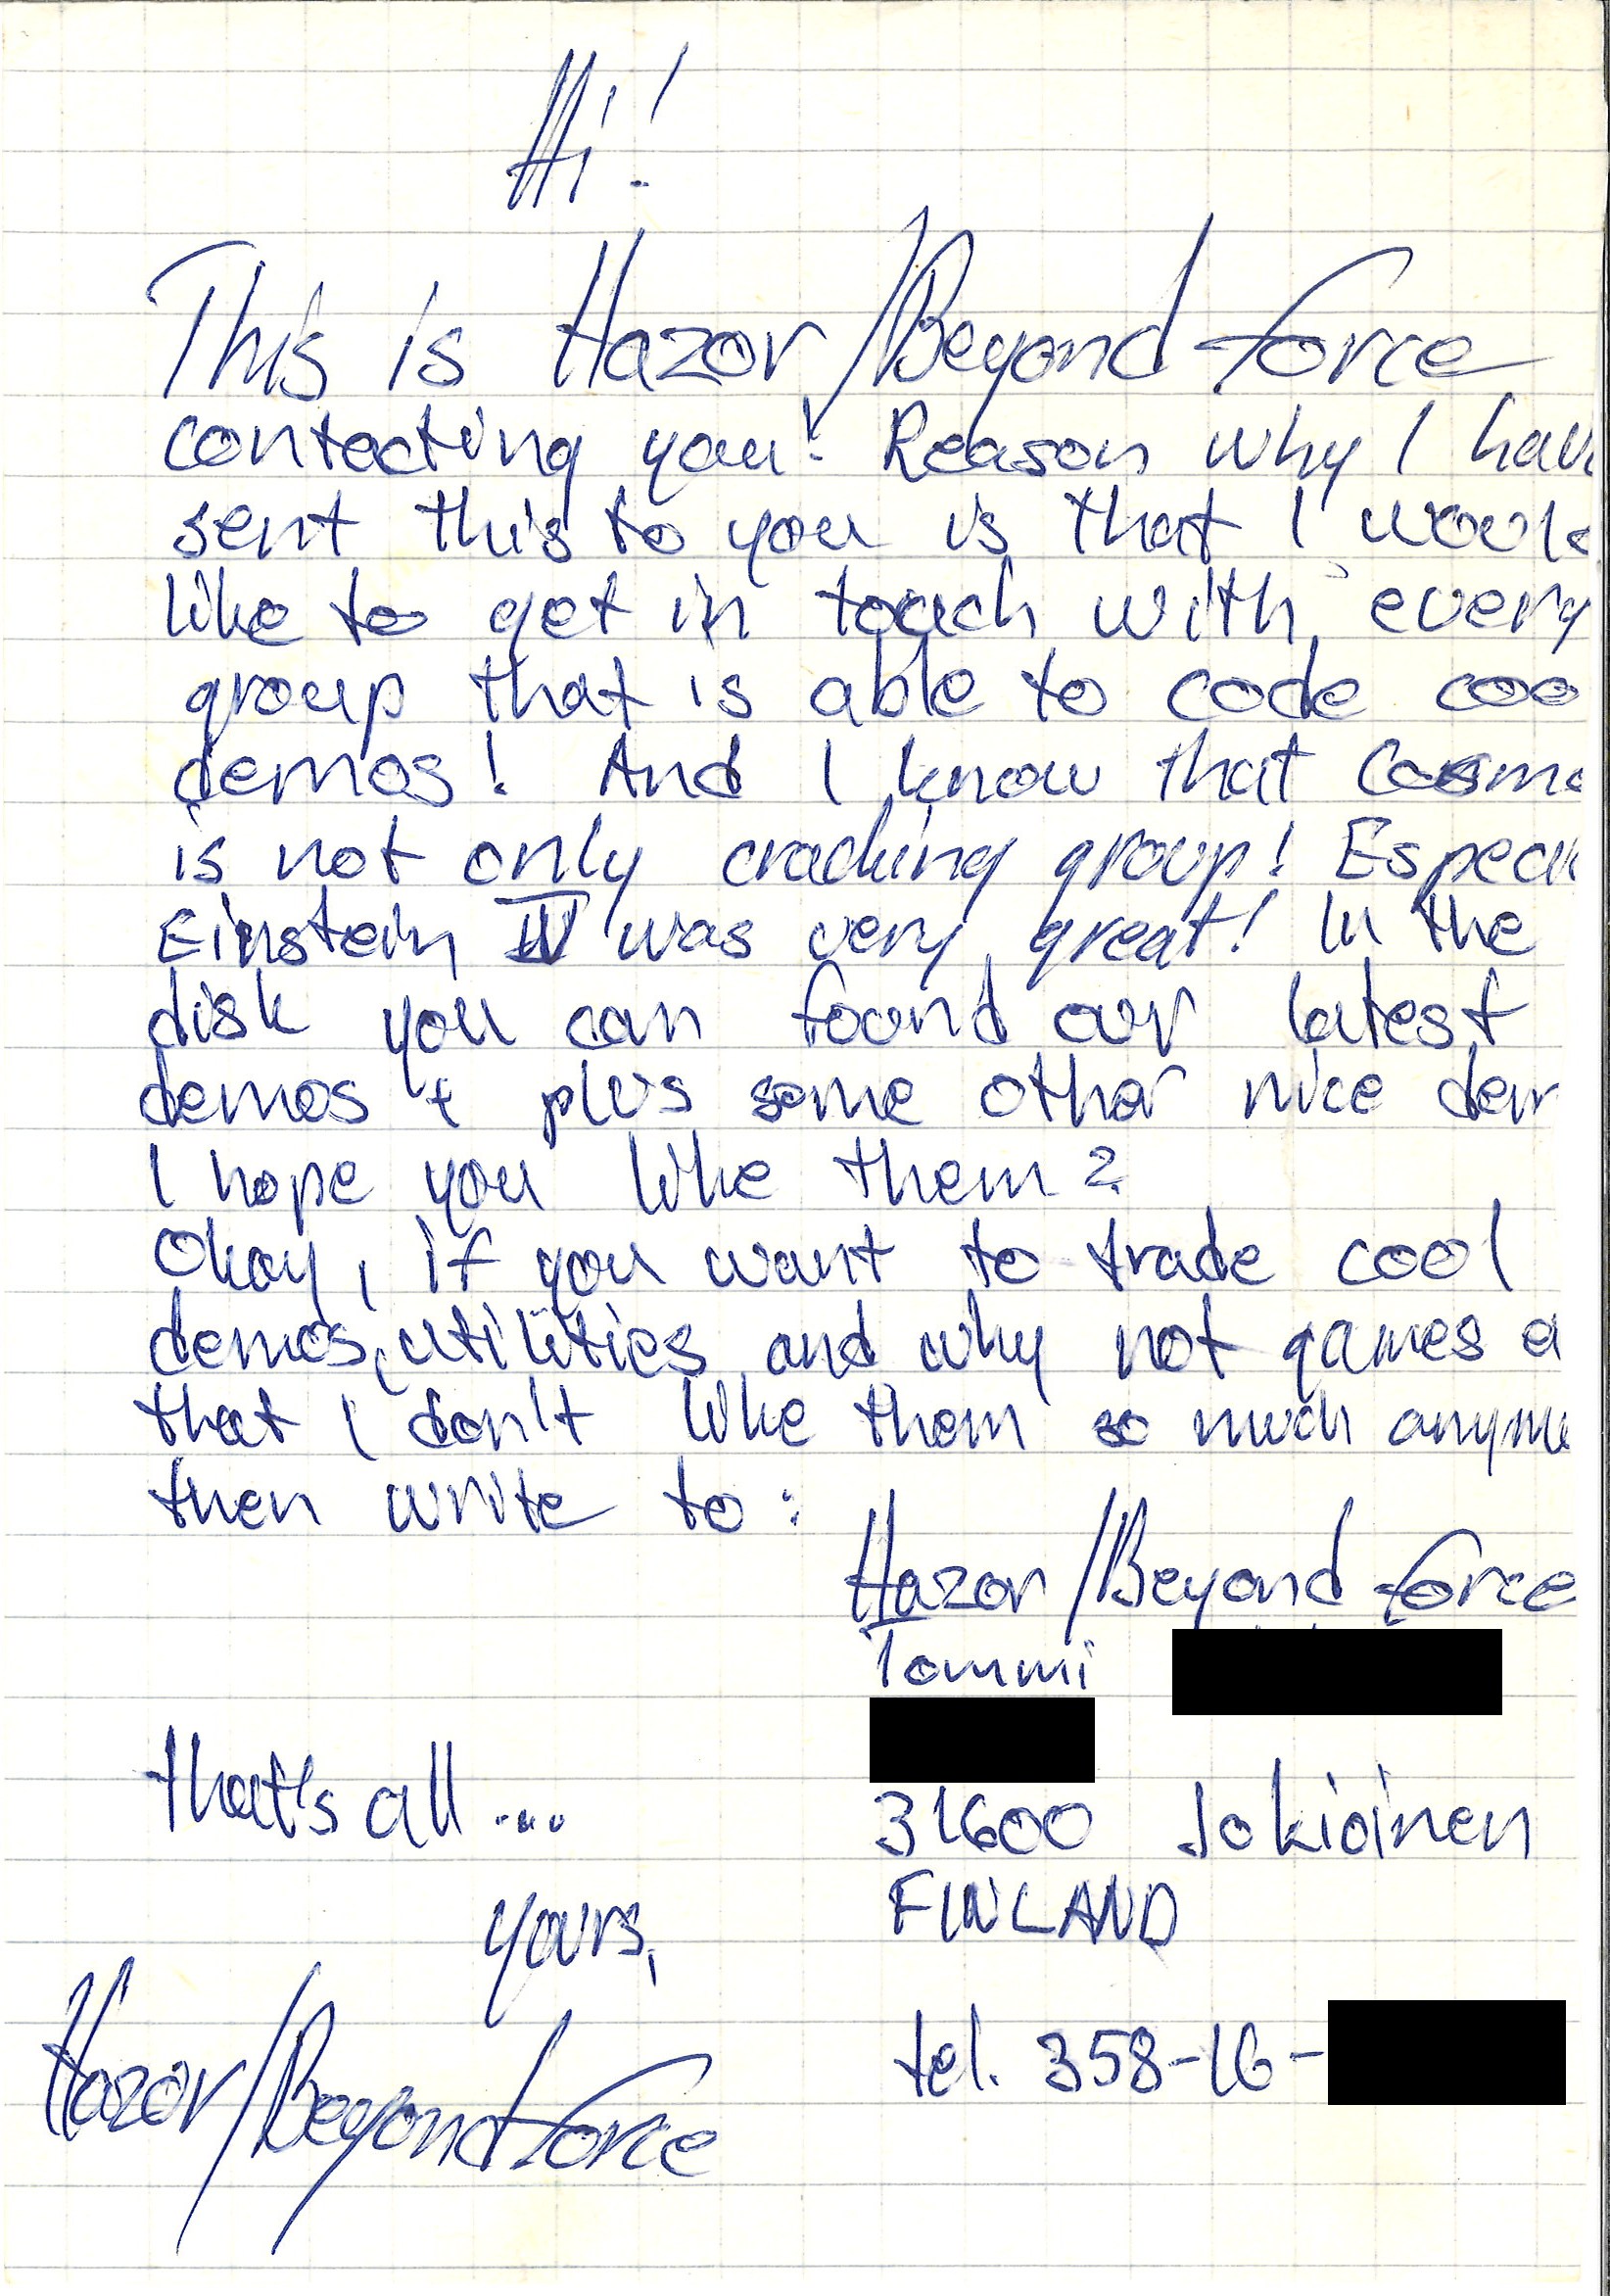 Hi!
This is Hazor/Beyond Force
contacting you! Reason why I hav
sent this to you is that I woul
like to get in touch with every
group that is able to code coo
demos! And I know that Cosm
is not only cracking group! Especi
Einstein IV was very great! In the
disk you can found our latest
demos + plus some other nice dem
I hope you like them?
Okay, if you want to trade cool
demos, utilities and why not games a
that I don't like them so much anymo
then write to:
Hazor/Beyond Force
Tommi
31600 Jokioinen
FINLAND
tel. 358-16-
that's all...
yours,
Hazor/Beyond Force